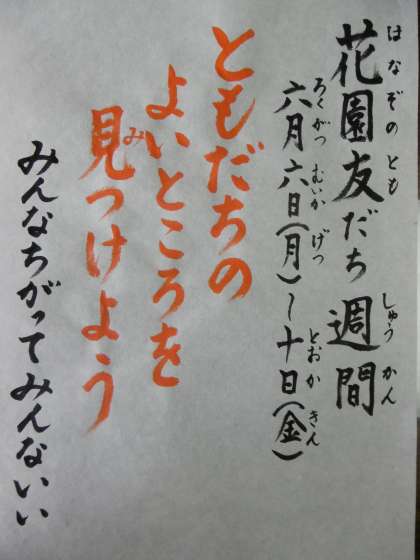 花園友だち週間
はなぞのとも しゅうかん
六月六日(月)～十日(金)
ろくがつ むいか げつ とおか きん
ともだちの
よいところを
見つけよう
み
みんなちがってみんないい